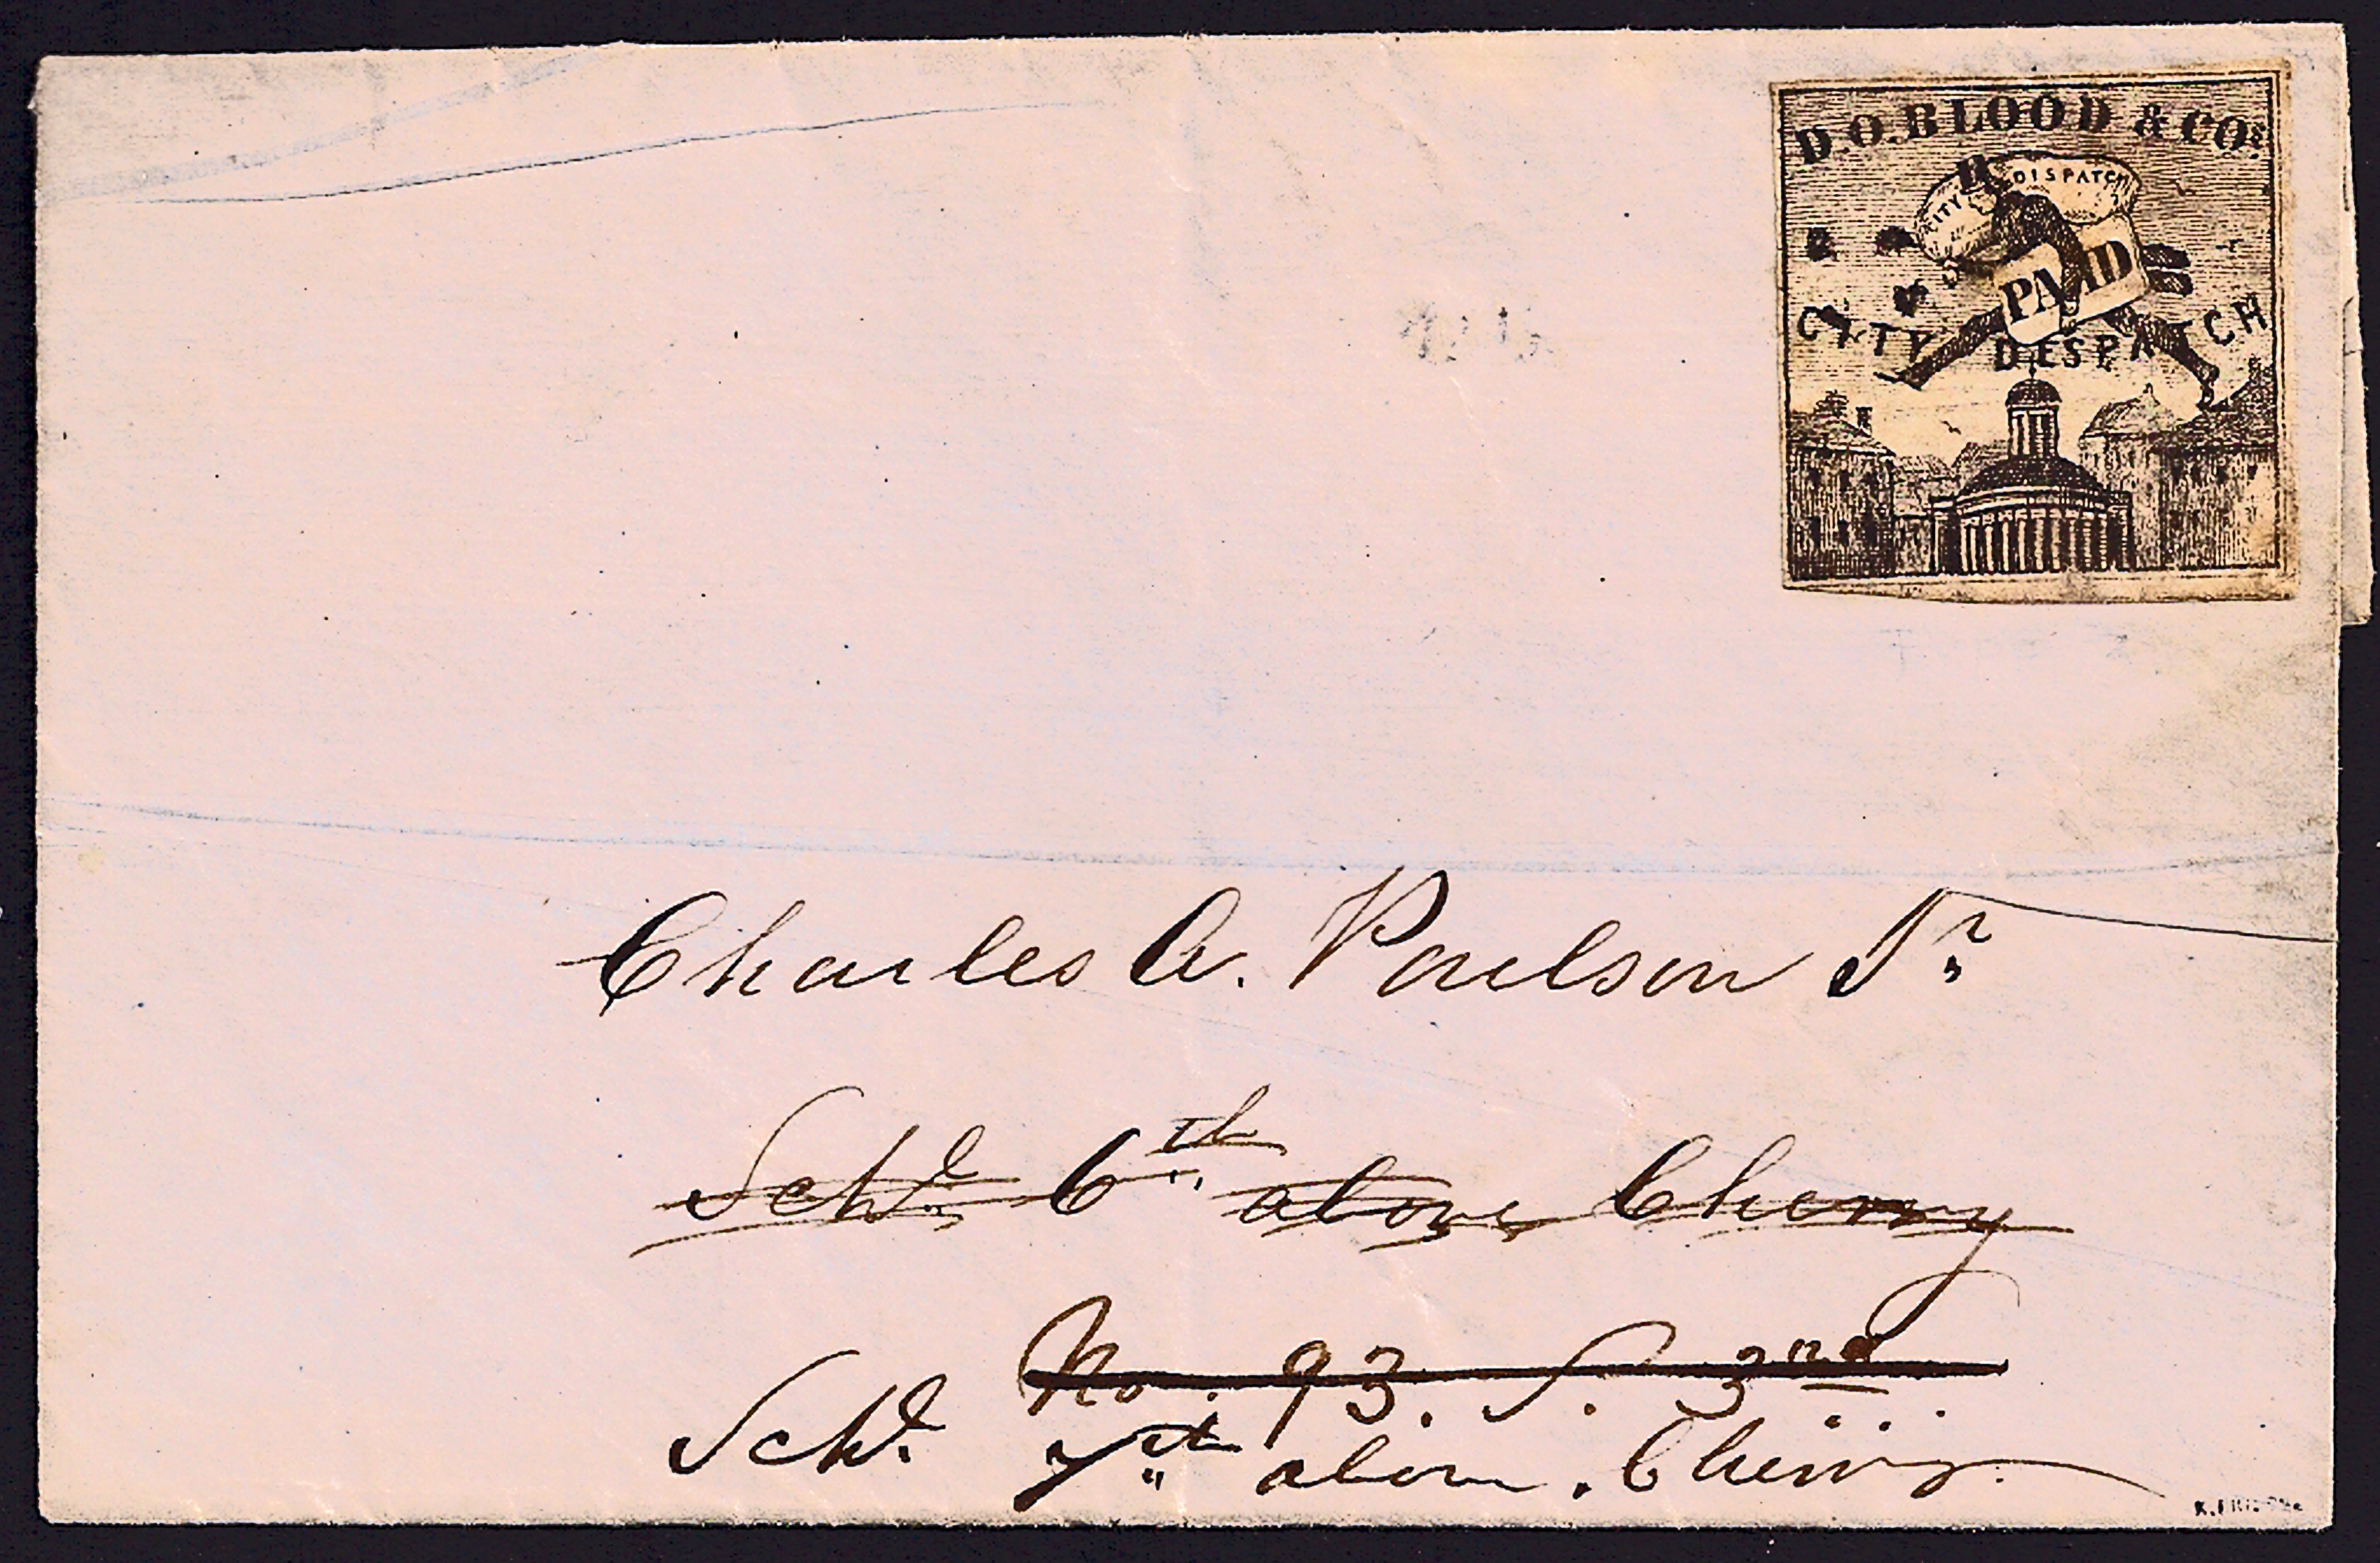 D.O.BLOOD & COs.
CITY DISPATCH
PAID
CITY DESPATCH
Charles A. Poulson Jr
Schl. 6th above Cherry
No. 93. S. 3rd
Schl. 7th above Cherry.